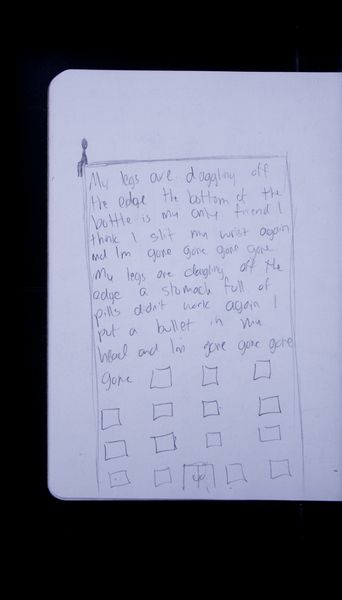 My legs are daggling off
the edge the bottom of the
bottle is my only friend I
think I slit my wrist again
and Im gone gone gone gone
My legs are dangling off the
edge a stomach full of
pills didn't work again I
put a bullet in my
head and Im gone gone gone
gone